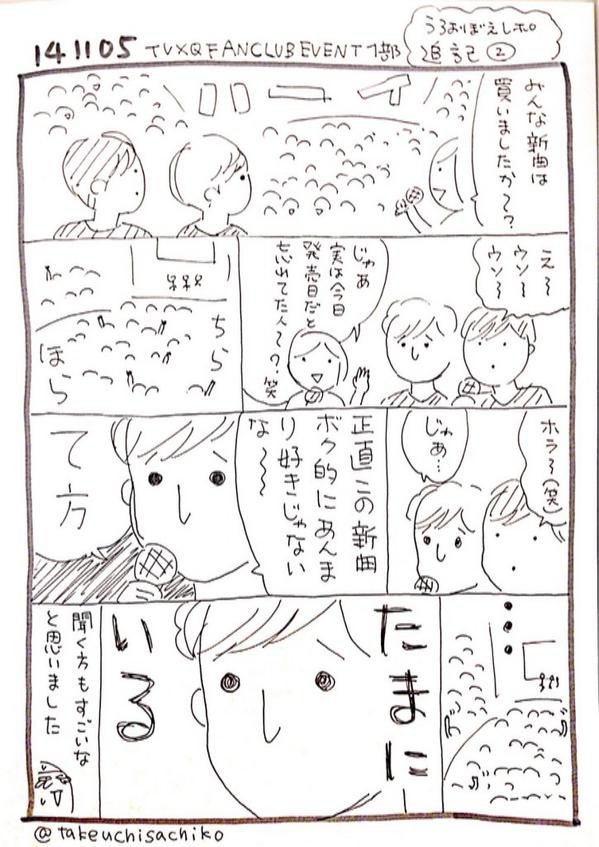 141105 TVXQ FANCLUB EVENT 1部
うろおぼえレポ
追記②
みんな新曲は
買いましたか〜?
え〜
ウン〜
ウン〜
じゃあ
実は今日
発売日だと
忘れてた人〜?笑
ちら
ほら
ホラ〜(笑)
じゃあ…
正直この新曲
ボク的にあんま
り好きじゃない
な〜〜
て方
たまに
いる
聞く方もすごいな
と思いました
@takeuchisachiko